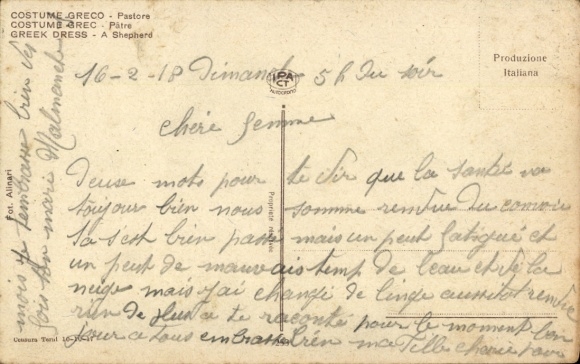 COSTUME GRECO - Pastore
COSTUME GREC - Pâtre
GREEK DRESS - A Shepherd
IPA CT
AUTOCROMO
Produzione
Italiana
16-2-18 Dimanche 5h du soir
chère femme
Deuse mots pour te dir que la santé va
toujour bien nous somme rendue du convoie
sa s'est bien passé mais un peut fatigué et
un peut de mauvais temp de l'eau et de la
neige mais j'ai changé de linge aussitot rendu
rien de plus a te raconté pour le moment bon
jour a tous embrasse bien ma fille cherie pour
mois je t'embrasse bien des
fois ton mari
Fot. Alinari
Proprietà riservata
Censura Terni 10-10-17